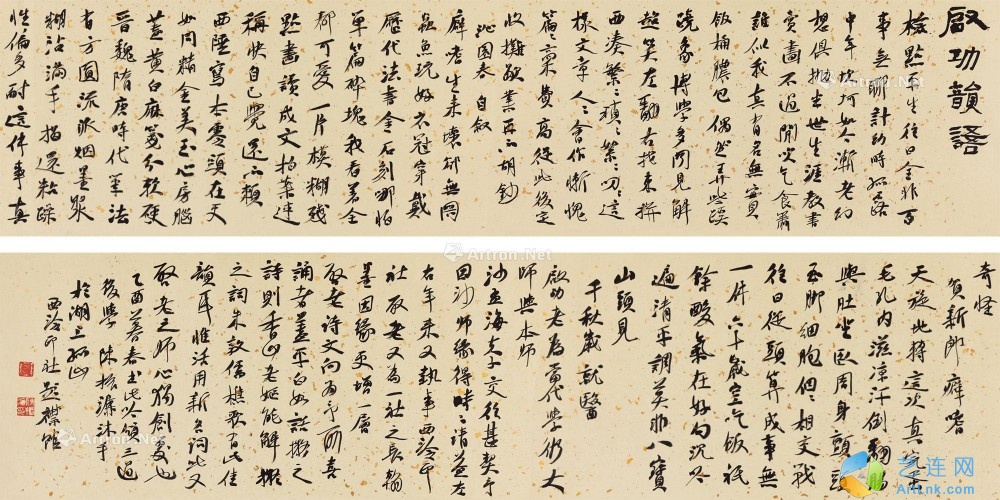 啟功韻語
檢點平生往日全非百
事無聊計幼時孤露
中年坎坷如今漸老幻
想俱拋半世生涯教書
賣畫不過閒吹乞食簫
誰似我真有名無實
飯桶膿包偶然弄些蹊
蹺像博學多聞見解
超笑左翻右找東拼
西湊繁繁瑣瑣絮絮叨叨這
樣文章人人會作慚愧
篇篇稿費高從此後定
收攤歇業再不胡鈔
沁園春 自敘
癖嗜生來壞卻無關
蟲魚玩好衣冠穿戴
歷代法書金石刻哪怕
單篇碎塊我看著全
都可愛一片模糊殘
點畫讀成文拍案連
稱快自己覺還不賴
西陲寫本零頭在天
如同精金美玉心房腦
蓋黃白麻箋分軟硬
晉魏隋唐時代筆法
有方圓流派烟墨
糊沾滿手揩還粘踩
性偏多耐這件事真
奇怪
賀新郎 癖嗜
天旋地轉這次真
毛孔內滋涼汗倒翻
與肚坐臥周身頭
玉脚細胞個個相交戰
往日從頭算成事無
一件六十歲空乞飯祇
餘酸氣在好句沉吟
遍清平調莫非八寶
山頭見
千秋歲 就醫
啟功老為當代學術大
師與本師
沙孟海夫子交往甚契予
因沙師緣得時時請益左
右年來又執事西泠印
社啟老又為一社之長翰
墨因緣更增一層
啟老詩文向為予所喜
誦者蓋平白如話擬之
詩則香山老嫗能解擬
之詞朱敦儒樵歌有此佳
韻耳惟活用新名詞此又
啟老之師心獨創處也
乙酉暮春書此吟頌三過
後學 陳振濂沐手
於湖上孤山
西泠印社題襟館
Artron.Net
艺连网
Artlnk.com